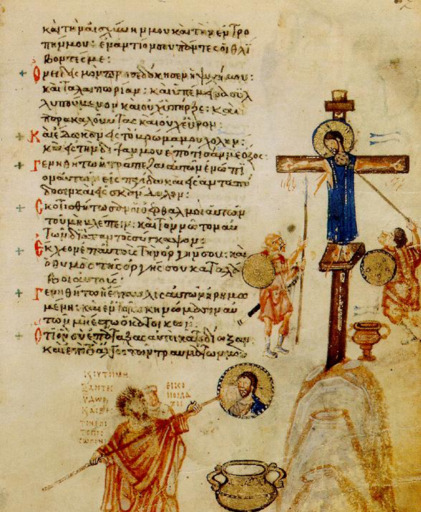 καὶ τὴν αἰσχύνην μου καὶ τὴν ἐντρο
πήν μου· ἐναντίον σου πάντες οἱ θλί
βοντές με·
Ὀνειδισμὸν προσεδόκησεν ἡ ψυχή μου·
καὶ ταλαιπωρίαν· καὶ ὑπέμεινα συλ
λυπούμενον καὶ οὐχ ὑπῆρξε· καὶ
παρακαλοῦντας καὶ οὐχ εὗρον·
Καὶ ἔδωκαν εἰς τὸ βρῶμά μου χολήν·
καὶ εἰς τὴν δίψαν μου ἐπότισάν με ὄξος·
Γενηθήτω ἡ τράπεζα αὐτῶν ἐνώπι
ον αὐτῶν εἰς παγίδα καὶ εἰς ἀνταπό
δοσιν καὶ εἰς σκάνδαλον·
Σκοτισθήτωσαν οἱ ὀφθαλμοὶ αὐτῶν
τοῦ μὴ βλέπειν· καὶ τὸν νῶτον αὐ
τῶν διὰ παντὸς σύγκαμψον·
Ἔκχεον ἐπ' αὐτοὺς τὴν ὀργήν σου· καὶ
ὁ θυμὸς τῆς ὀργῆς σου καταλά
βοι αὐτούς·
Γενηθήτω ἡ ἔπαυλις αὐτῶν ἠρημω
μένη· καὶ ἐν τοῖς σκηνώμασιν αὐ
τῶν μὴ ἔστω ὁ κατοικῶν·
Ὅτι ὃν σὺ ἐπάταξας αὐτοὶ κατεδίωξαν·
καὶ ἐπὶ τὸ ἄλγος τῶν τραυμάτων μου